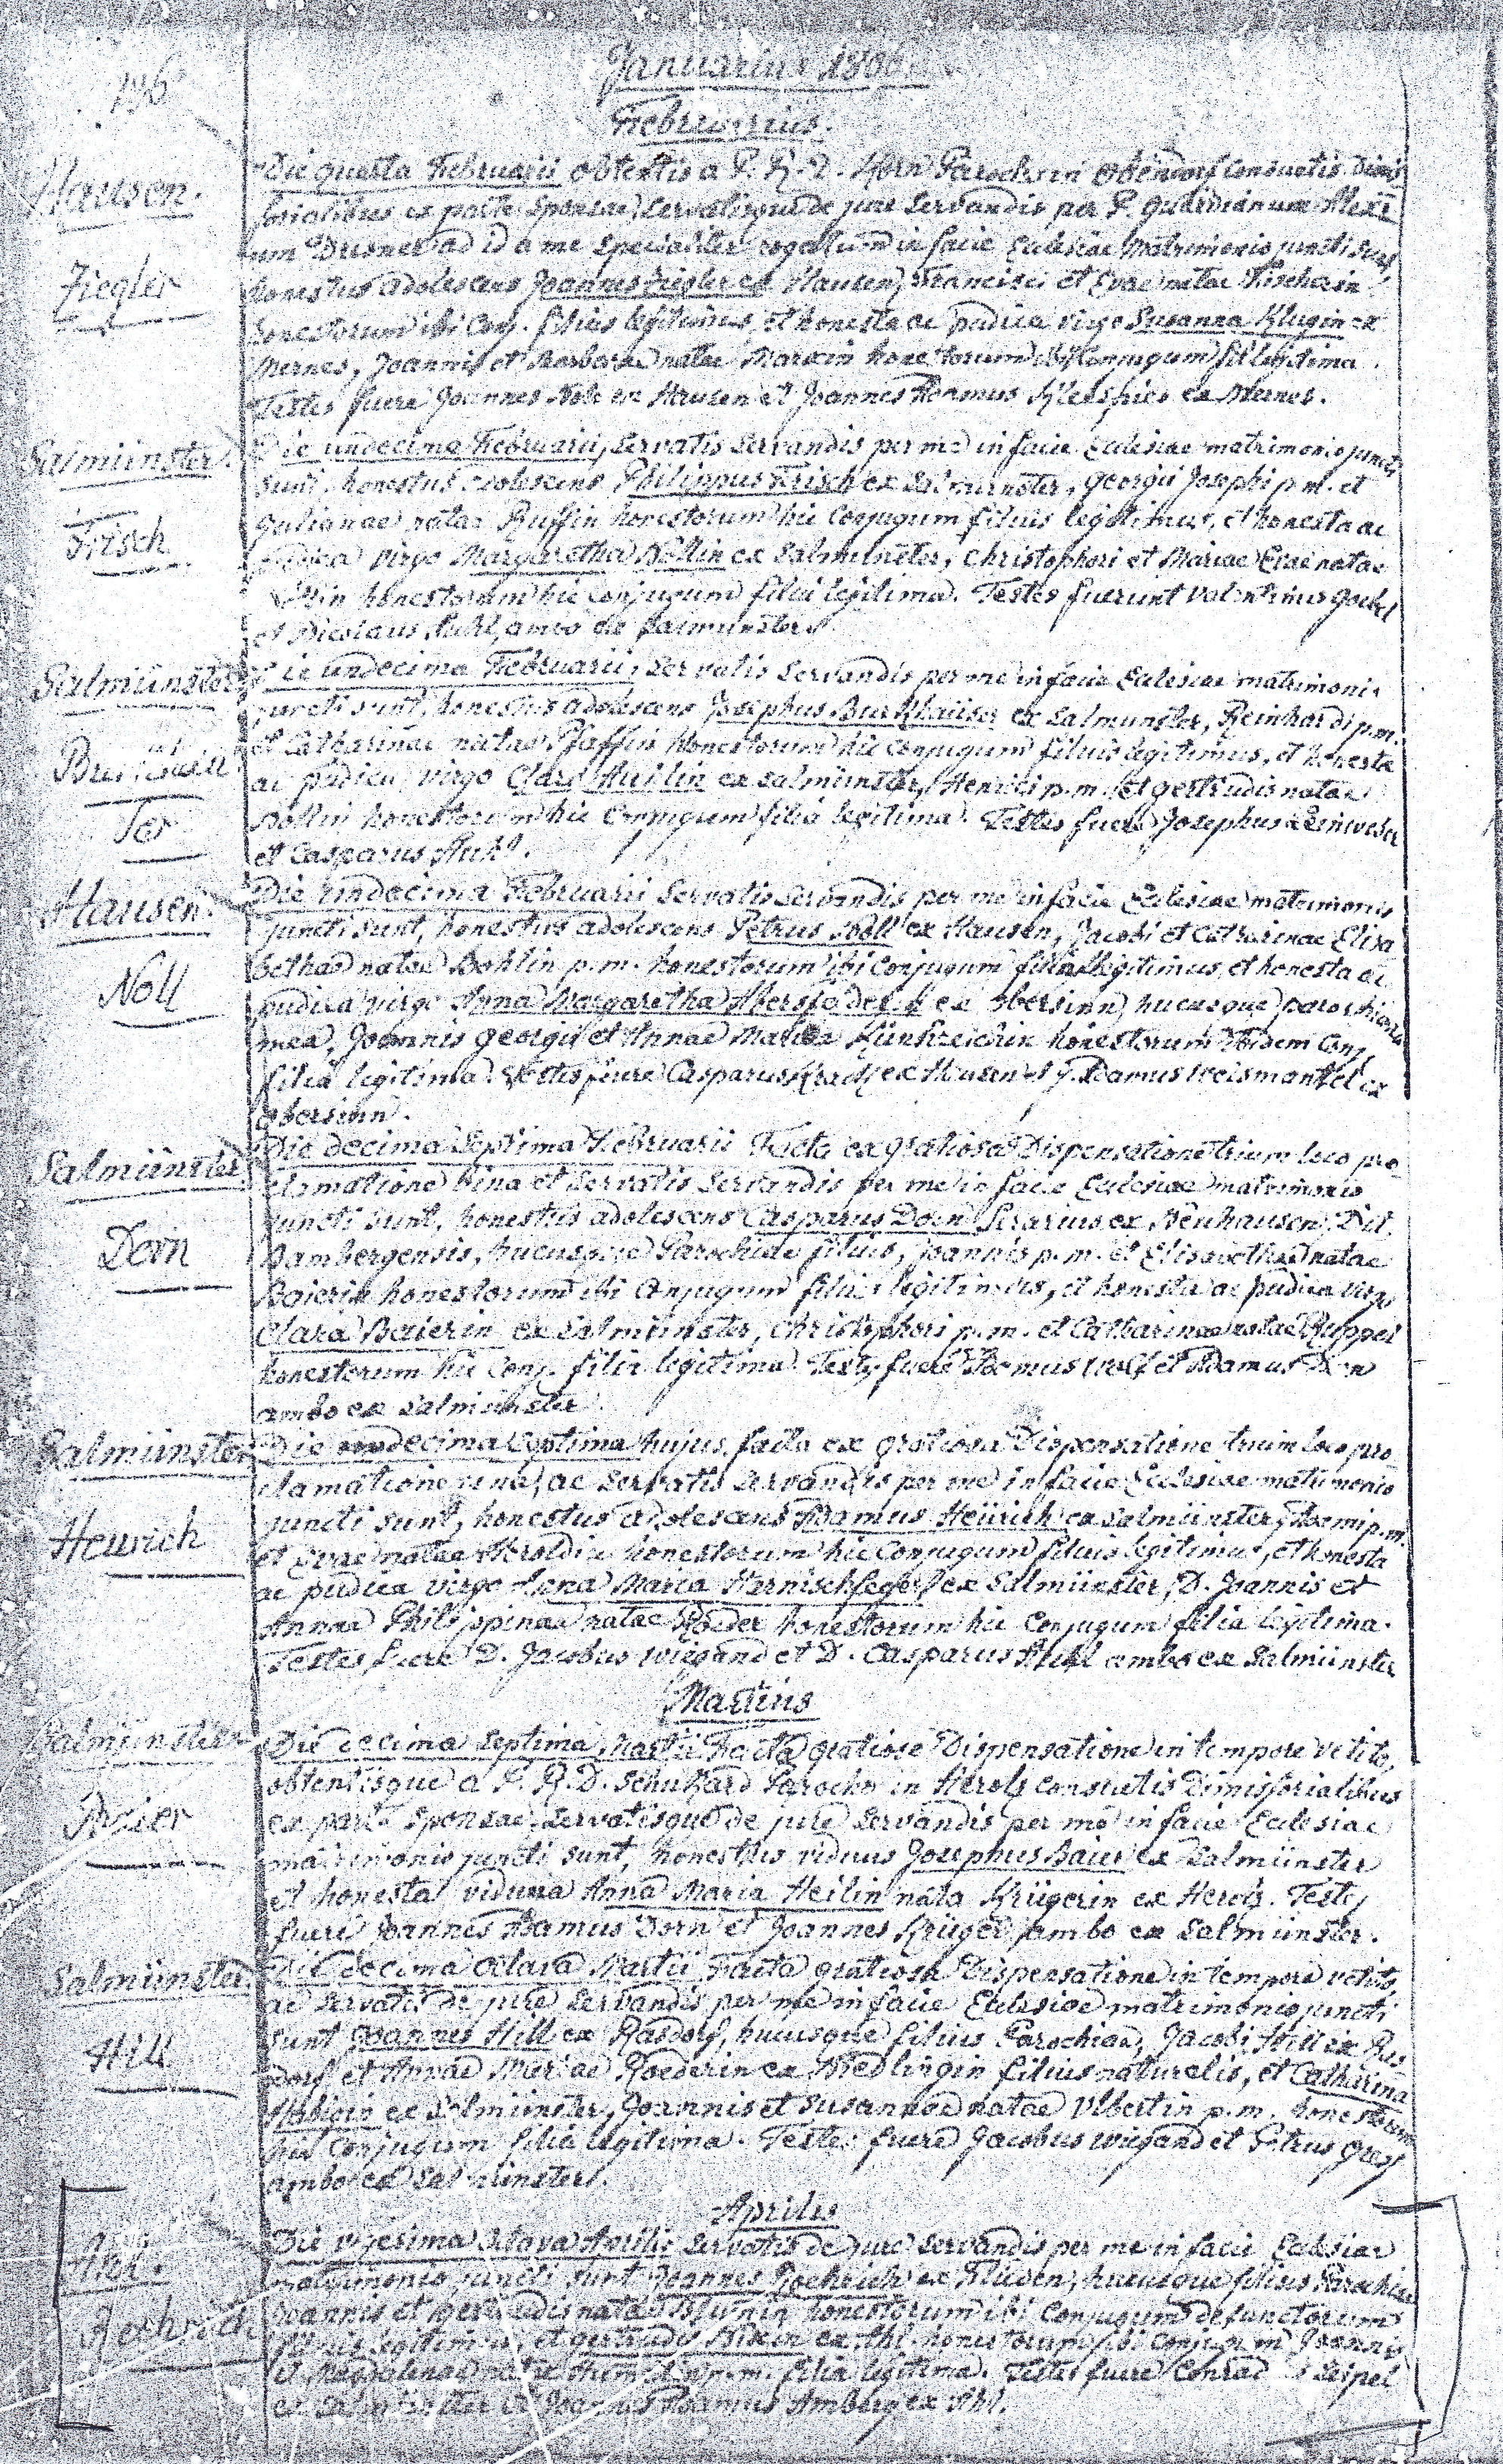 196
Januarius 1806
Februarius.
Hausen.
Ziegler
Die quarta Februarii obtentis a P. R. D. Horn Parocho in consuetis Dimis
sorialibus ex parte Sponsae, Servatisque de jure Servandis per P. guardianum
um ad id a me specialiter rogatum in facie Ecclesiae Matrimonio juncti sunt,
honestus adolescens Joannes Ziegler ex Hausen, Francisci et Evae natae Fischerin
honestorum ibi Conj. filius legitimus, et honesta ac pudica virgo Susanna Klugin ex
Mernes, Joannis et Barbarae natae Marxin honestorum ibi Conjugum filia legitima.
Testes fuere Joannes Noll ex Hausen et Joannes Adamus ex Mernes.
Salmünster.
Frisch
Die undecima Februarii, Servatis Servandis per me in facie Ecclesiae matrimonio juncti
Sunt, honestus adolescens Philippus Frisch ex Salmünster, georgii Josephi p.m. et
Julianae natae Ruffin honestorum hic Conjugum filius legitimus, et honesta ac
pudica virgo Margaretha Böllin ex Salmünster, Christophori et Mariae Evae natae
honestorum hic conjugum filia legitima. Testes fuerunt Valentinus goebel
et Nicolaus Ruhl, ambo ex Salmünster.
Salmünster
Burkhäu
ser
Die undecima Februarii, Servatis Servandis per me in facie Ecclesiae matrimonio
juncti sunt, honestus adolescens Josephus Burkhäuser ex Salmunster, Reinhardi p.m.
et Catharinae natae Pfaffin honestorum hic conjugum filius legitimus, et honesta
ac pudica virgo Clara ex Salmünster, Henrici p.m. et gertrudis natae
Böllin honestorum hic Conjugum filia legitima. Testes fuere Josephus Leinweber
et Casparus Ruhl.
Hausen.
Noll
Die undecima Februarii Servatis Servandis per me in facie Ecclesiae matrimonio
juncti sunt, honestus adolescens Petrus Noll ex Hausen, Jacobi et Catharinae Elisa
bethae natae Böhlin p.m. honestorum ibi Conjugum filius legitimus, et honesta ac
pudica virgo Anna Margaretha ex obersinn, hucusque parochiana
mea, Joannis georgii et Annae Mariae honestorum ibidem Conj.
filia legitima. Testes fuere Casparus ex Hausen et J. Adamus Weismantel ex
obersinn.
Salmünster
Dorn
Die decima Septima Februarii Facta ex gratiosa Dispensatione trium loco pro
clamatione bina et Servatis Servandis per me in facie Ecclesiae matrimonio
juncti sunt, honestus adolescens Casparus Dorn Serarius ex Neuhausen, Dit.
Bambergensis, hucusque Parochiae filius, Joannis p.m. et Elisabethae natae
Baierin honestorum ibi Conjugum filius legitimus, et honesta ac pudica virgo
Clara Baierin ex Salmünster, Christophori p.m. et Catharinae natae Ruppel
honestorum hic Conj. filia legitima. Testes fuere Adamus Wolf et Adamus Dorn
ambo ex Salmünster.
Salmünster
Heurich
Die decima Septima hujus, facta ex gratiosa Dispensatione trium loco pro
clamatione una, ac Servatis Servandis per me in facie Ecclesiae matrimonio
juncti sunt, honestus adolescens Adamus Heurich ex Salmünster, Adami p.m.
et Evae natae Heroldin honestorum hic Conjugum filius legitimus, et honesta
ac pudica virgo Anna Maria Harnischfeger ex Salmünster, D. Joannis et
Annae Philippinae natae Röder honestorum hic Conjugum filia legitima.
Testes fuere D. Jacobus Wiegand et D. Casparus Ruhl ambo ex Salmünster
Martius
Salmünster
Baier
Die decima Septima Martii Facta gratiose Dispensatione in tempore vetito,
obtentisque a P. R. D. Schukard Parocho in Herolz consuetis Dimissorialibus
ex parte Sponsae, Servatisque de jure Servandis per me in facie Ecclesiae
matrimonio juncti sunt, honestus viduus Josephus Baier ex Salmünster
et honesta vidua Anna Maria Heilin nata Krügerin ex Herolz. Testes
fuere Joannes Adamus Dorn et Joannes Krüger, ambo ex Salmünster.
Salmünster.
Hill
Die decima octava Martii Facta gratiosa Dispensatione in tempore vetito,
ac Servatis de jure Servandis per me in facie Ecclesiae matrimonio juncti
Sunt Joannes Hill ex Rasdorf, hucusque filius Parochiae, Jacobi Hill ex Ras
dorf et Annae Mariae Roederin ex filius naturalis, et Catharina
ex Salmünster, Joannis et Susannae natae Ulbertin p.m. honestorum
hic Conjugum filia legitima. Testes fuere Jacobus Wiegand et Petrus
ambo ex Salmünster.
Aprilis
Ahl.
Roehrich
Die vigesima octava Aprilis Servatis de jure Servandis per me in facie Ecclesiae
matrimonio juncti sunt Joannes Roehrich ex Flieden, hucusque filius Parochiae
Joannis et gertrudis natae honestorum ibi Conjugum defunctorum
filius legitimus, et gertrudis ex Ahl honestorum ibi Conjugum Joannis
et Magdalenae natae p.m. filia legitima. Testes fuere Conrad Seipel
ex Salmünster et Joannes Adamus Amberg ex Ahl.